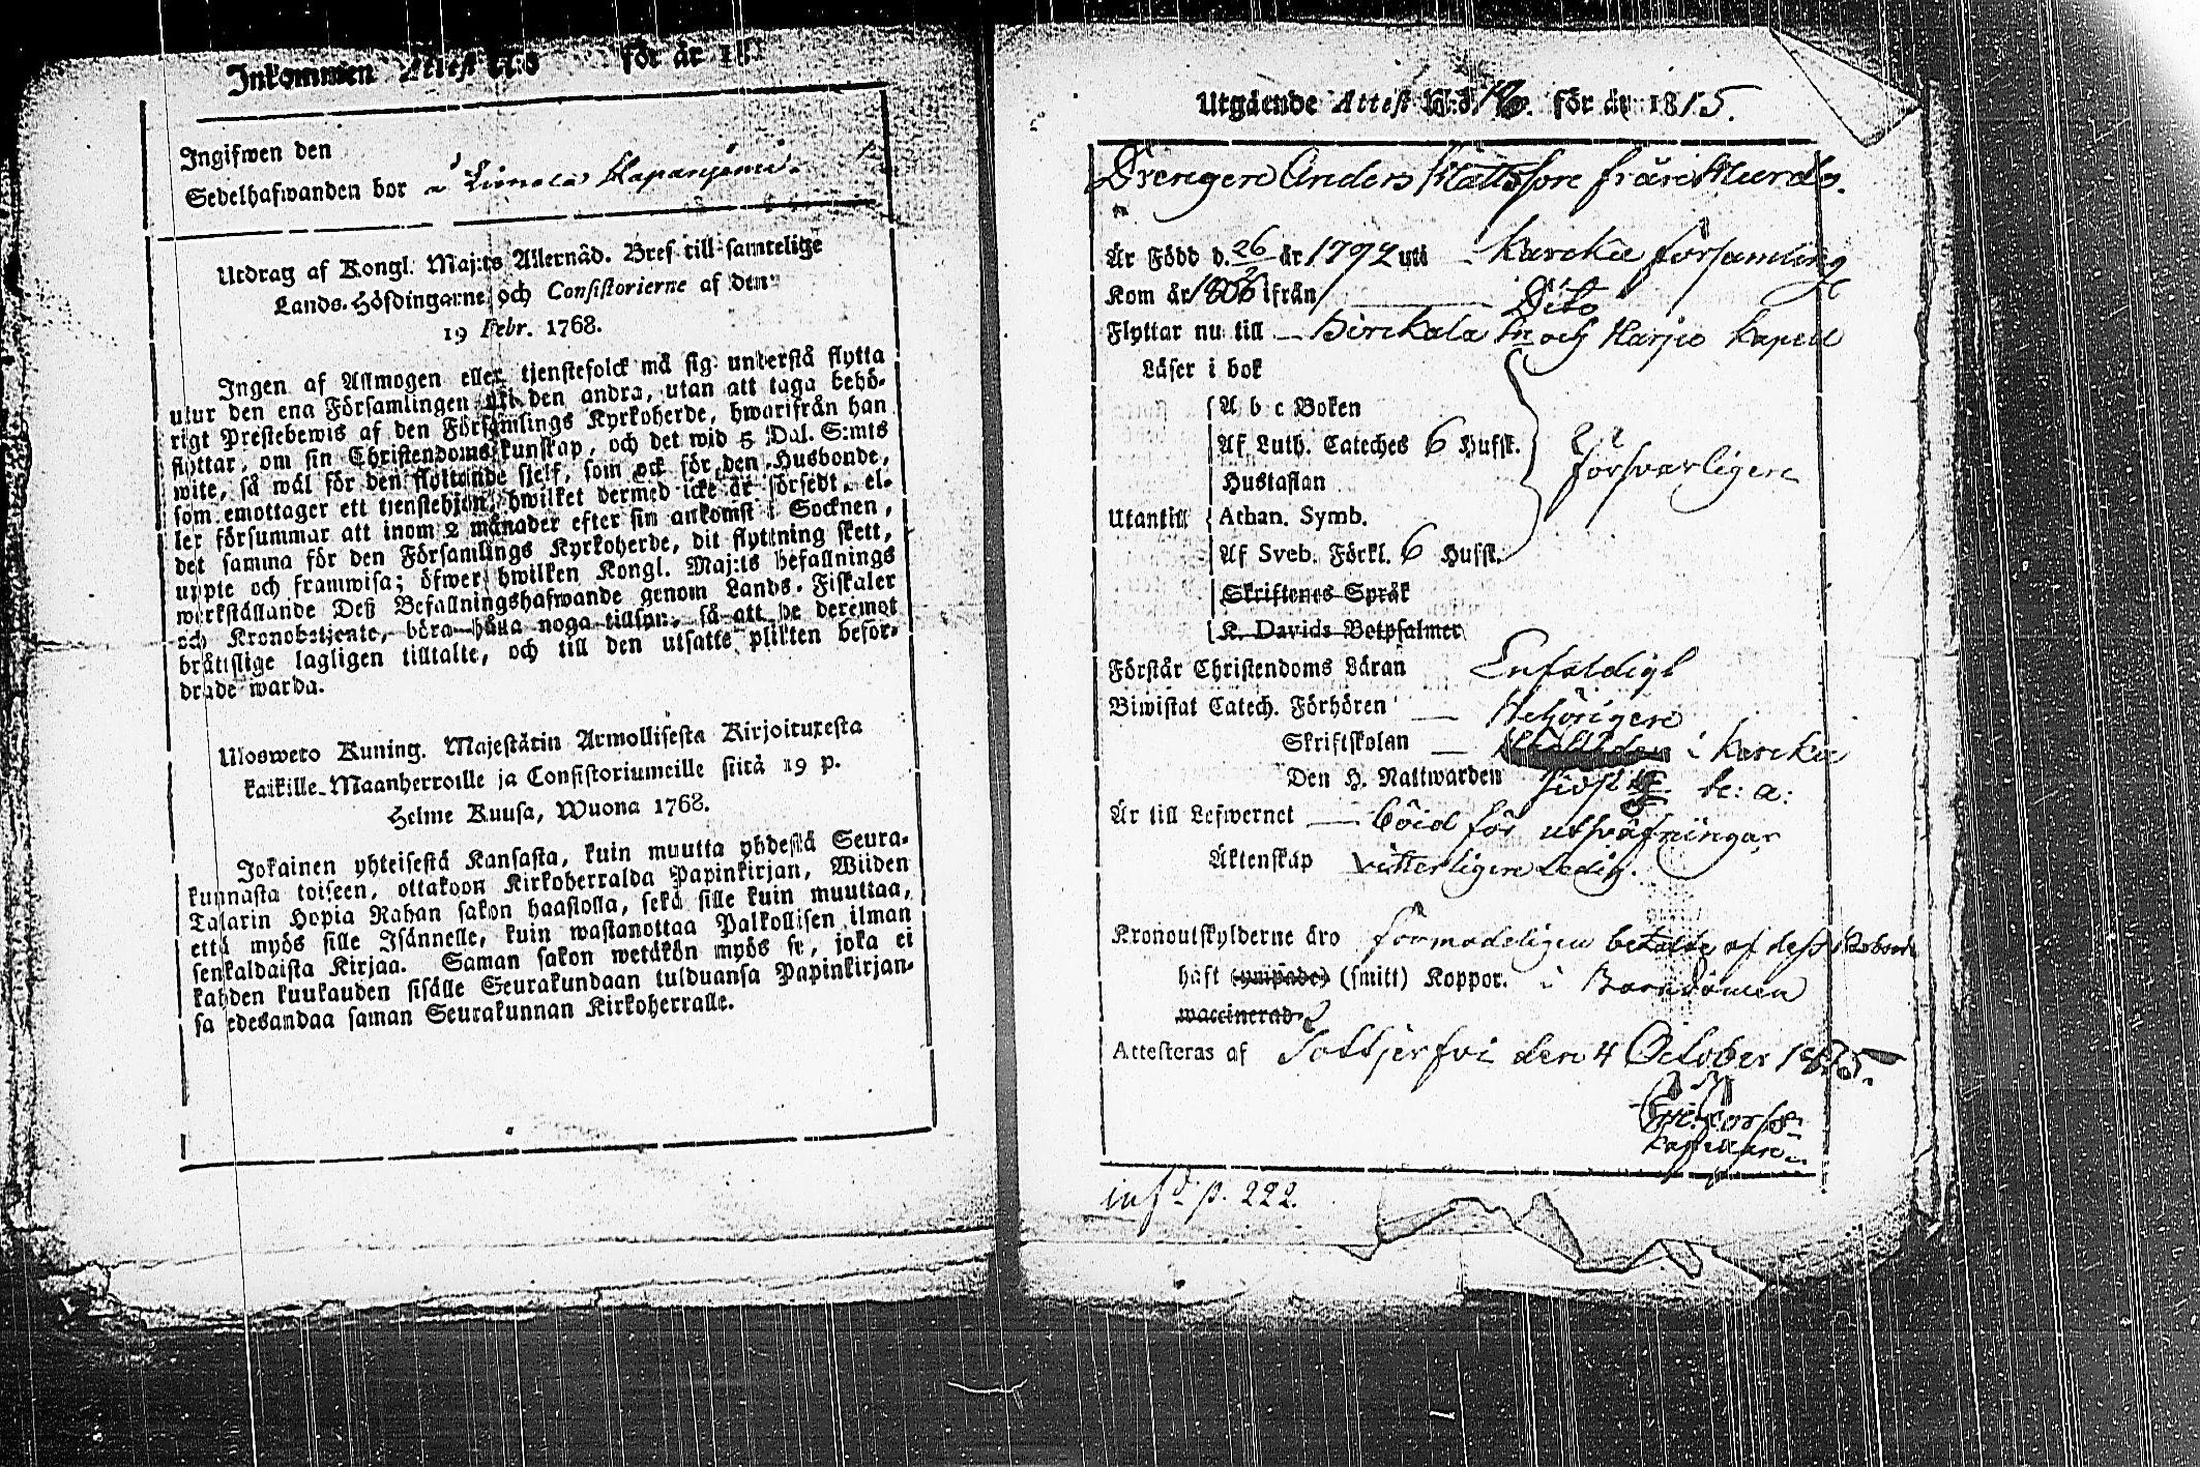 Inkommen Attest N:o för år 18
Ingifwen den
Sedelhafwanden bor
Utdrag af Kongl. Maj:ts Allernåd. Bref till samtelige
Lands-Höfdingarne och Consistorierne af den
19 Febr. 1768.
Ingen af Allmogen eller tjenstefolck må sig understå flytta
utur den ena Församlingen uti den andra, utan att taga behö-
rigt Prestebewis af den Församlings Kyrkoherde, hwarifrån han
flyttar, om sin Christendoms kunskap, och det wid 5 Dal. S:mts
wite, så wäl för den flyttande sjelf, som ock för den Husbonde,
som emottager ett tjenstehjon, hwilket dermed icke är försedt, el-
ler försummar att inom 2 månader efter sin ankomst i Socknen,
det samma för den Församlings Kyrkoherde, dit flyttning skett,
uppte och framwisa; öfwer hwilken Kongl. Maj:ts befallnings
werkställande Deß Befallningshafwande genom Lands-Fiskaler
och Kronobetjente, böra hålla noga tillsyn, så att de deremot
bråttslige lagligen tilltalte, och till den utsatte plikten befor-
drade warda.
Ulosweto Kuning. Majestätin Armollisesta Kirjoituxesta
kaikille Maanherroille ja Consistoriumeille siitä 19 p.
Helme Kuusa, Wuona 1768.
Jokainen yhteisestä Kansasta, kuin muutta yhdestä Seura-
kunnasta toiseen, ottakoon Kirkoherralda Papinkirjan, Wiiden
Talarin Hopia Rahan sakon haastolla, sekä sille kuin muuttaa,
että myös sille Isännelle, kuin wastanottaa Palkollisen ilman
senkaldaista Kirjaa. Saman sakon wetäkön myös se, joka ei
kahden kuukauden sisälle Seurakundaan tulduansa Papinkirjan-
sa edesandaa saman Seurakunnan Kirkoherralle.
Utgående Attest N:o 16. för år 1815.
Drengen Anders Mattsson från
Är Född d. 26 år 1792 uti Karcku församling
Kom år 1806 ifrån Dito
Flyttar nu till Birckala Sn och Harju Kapell
Läser i bok
A b c Boken
Af Luth. Cateches 6 Hufst.
Hustaflan
försvarligen
Utantill Athan. Symb.
Af Sveb. Förkl. 6 Hufst.
Skriftenes Språk
K. Davids Botpsalmer
Förstår Christendoms Läran Enfaldigt
Biwistat Catech. Förhören Behörigen
Skriftskolan i Karcku
Den H. Nattwarden sidst
Är till Lefwernet
Äktenskap vitterligen Ledig.
Kronoutskylderne äro förmodeligen betalte af dess
haft (ympade) (smitt) Koppor. i Barndomen
waccinerad
Attesteras af Tottjerfvi den 4 October 1815.
inf d. p. 222.